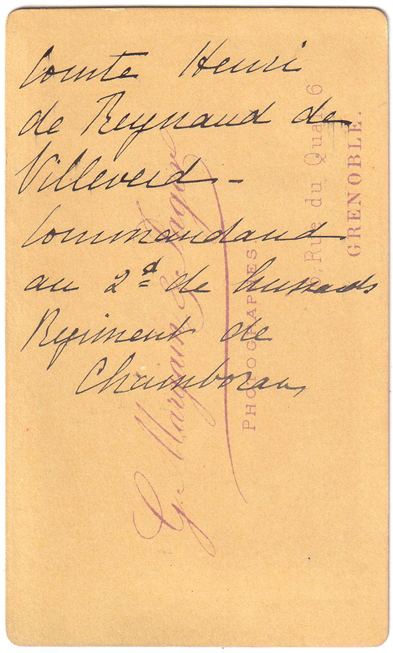 Comte Henri
de Reynaud de
Villeverd -
Commandant
au 2d de hussards
Régiment de
Chamboran
G. Margain & Jager
PHOTOGRAPHES
6, Rue du Quai, 6
GRENOBLE.